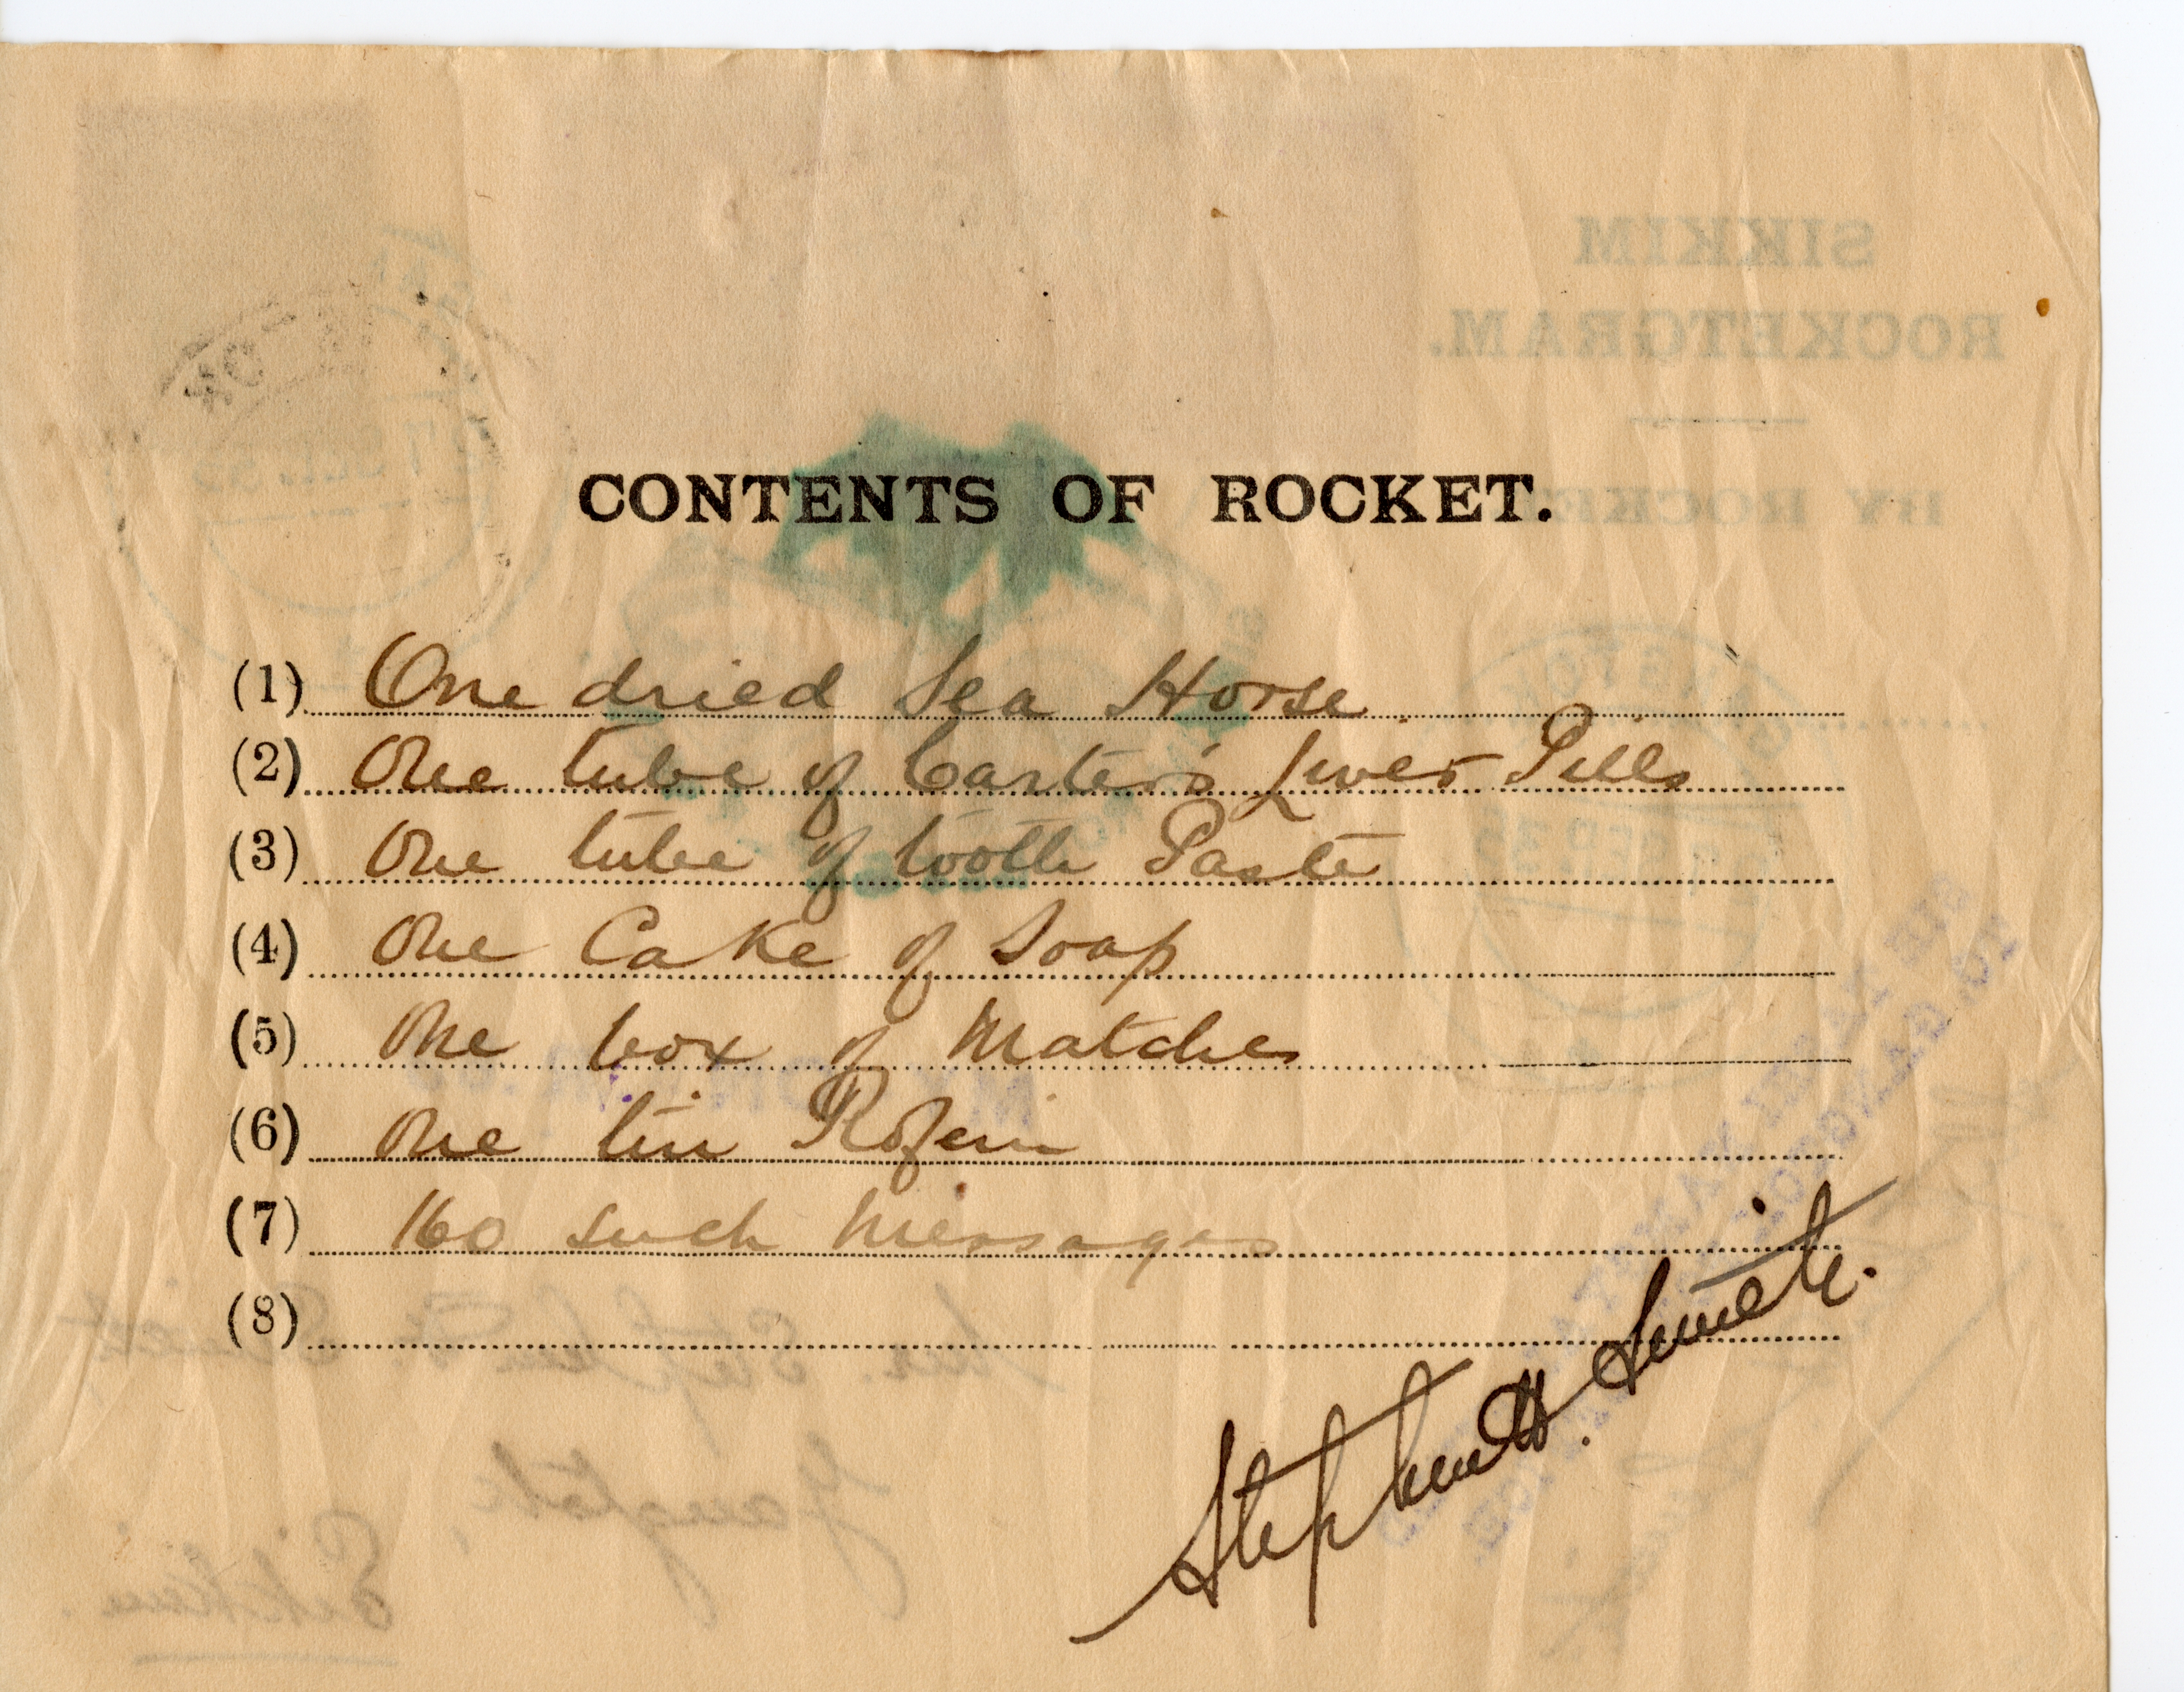 SIKKIM
ROCKETGRAM.
BY ROCKE
CONTENTS OF ROCKET.
(1) One dried Sea Horse
(2) One tube of Carter's Liver Pills
(3) One tube of tooth Paste
(4) One Cake of Soap
(5) One box of Matches
(6) One tin
(7) 160 such Messages
(8)
Stephen H. Smith.
Gangtok,
Sikkim.